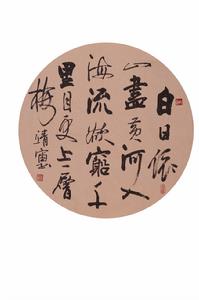 白日依
山盡黄河入
海流欲窮千
里目更上一層
樓 靖